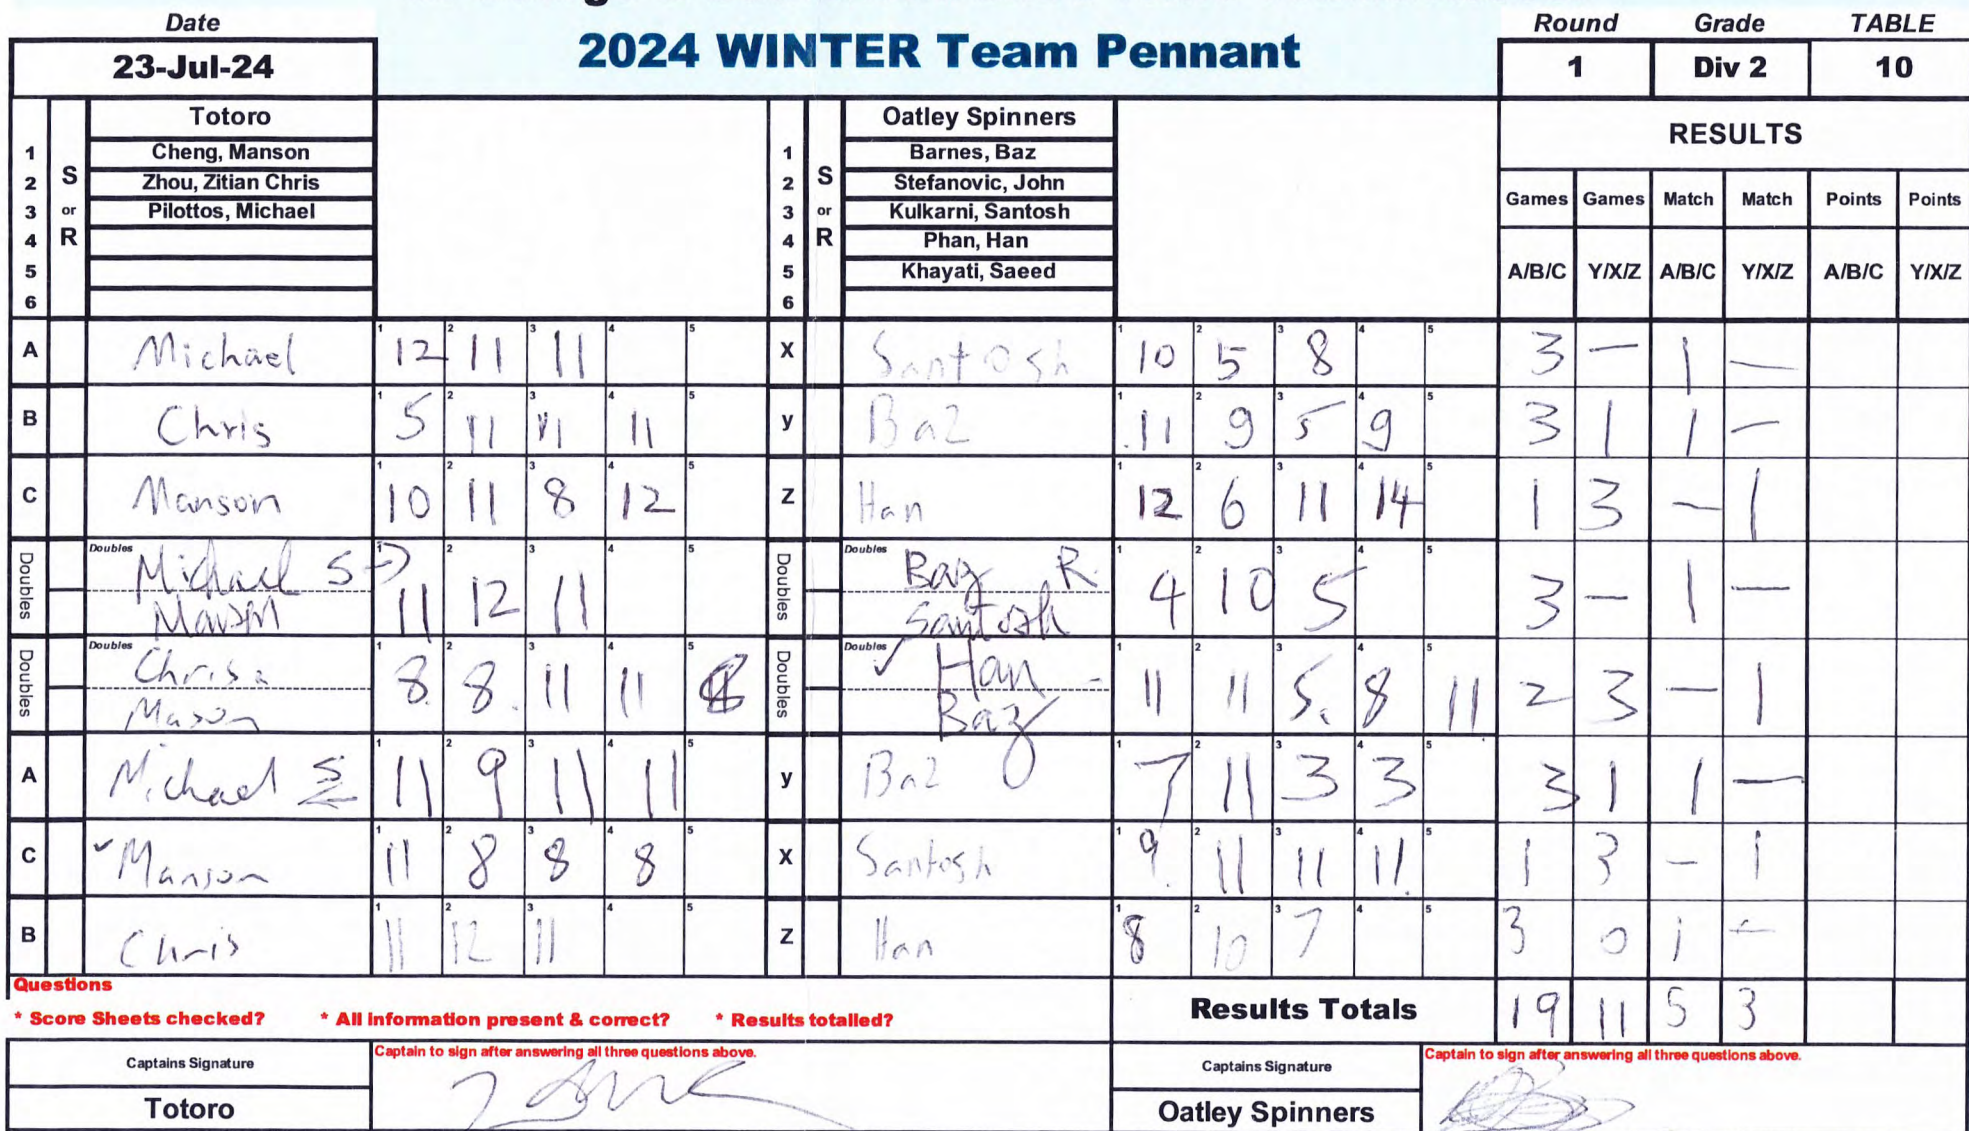 Date
23-Jul-24
2024 WINTER Team Pennant
Round Grade TABLE
1 Div 2 10
S or R
1 2 3 4 5 6
Totoro
Cheng, Manson
Zhou, Zitian Chris
Pilottos, Michael
1 2 3 4 5 6
S or R
Oatley Spinners
Barnes, Baz
Stefanovic, John
Kulkarni, Santosh
Phan, Han
Khayati, Saeed
RESULTS
Games Games Match Match Points Points
A/B/C Y/X/Z A/B/C Y/X/Z A/B/C Y/X/Z
A Michael 12 11 11 X Santosh 10 5 8 3 — 1 —
B Chris 5 11 11 11 y Baz 11 9 5 9 3 1 1 —
C Manson 10 11 8 12 Z Han 12 6 11 14 1 3 — 1
Doubles Doubles Michael S Manson 11 12 11 Doubles Doubles Baz R. Santosh 4 10 5 3 — 1 —
Doubles Doubles Chris & Mason 8 8 11 11 Doubles Doubles ✓ Han Baz 11 11 5 8 11 2 3 — 1
A Michael S 11 9 11 11 y Baz 7 11 3 3 3 1 1 —
C ✓ Manson 11 8 8 8 X Santosh 9 11 11 11 1 3 — 1
B Chris 11 12 11 Z Han 8 10 7 3 0 1 —
Questions
* Score Sheets checked? * All information present & correct? * Results totalled?
Results Totals 19 11 5 3
Captains Signature
Captain to sign after answering all three questions above.
Totoro
Captains Signature
Captain to sign after answering all three questions above.
Oatley Spinners